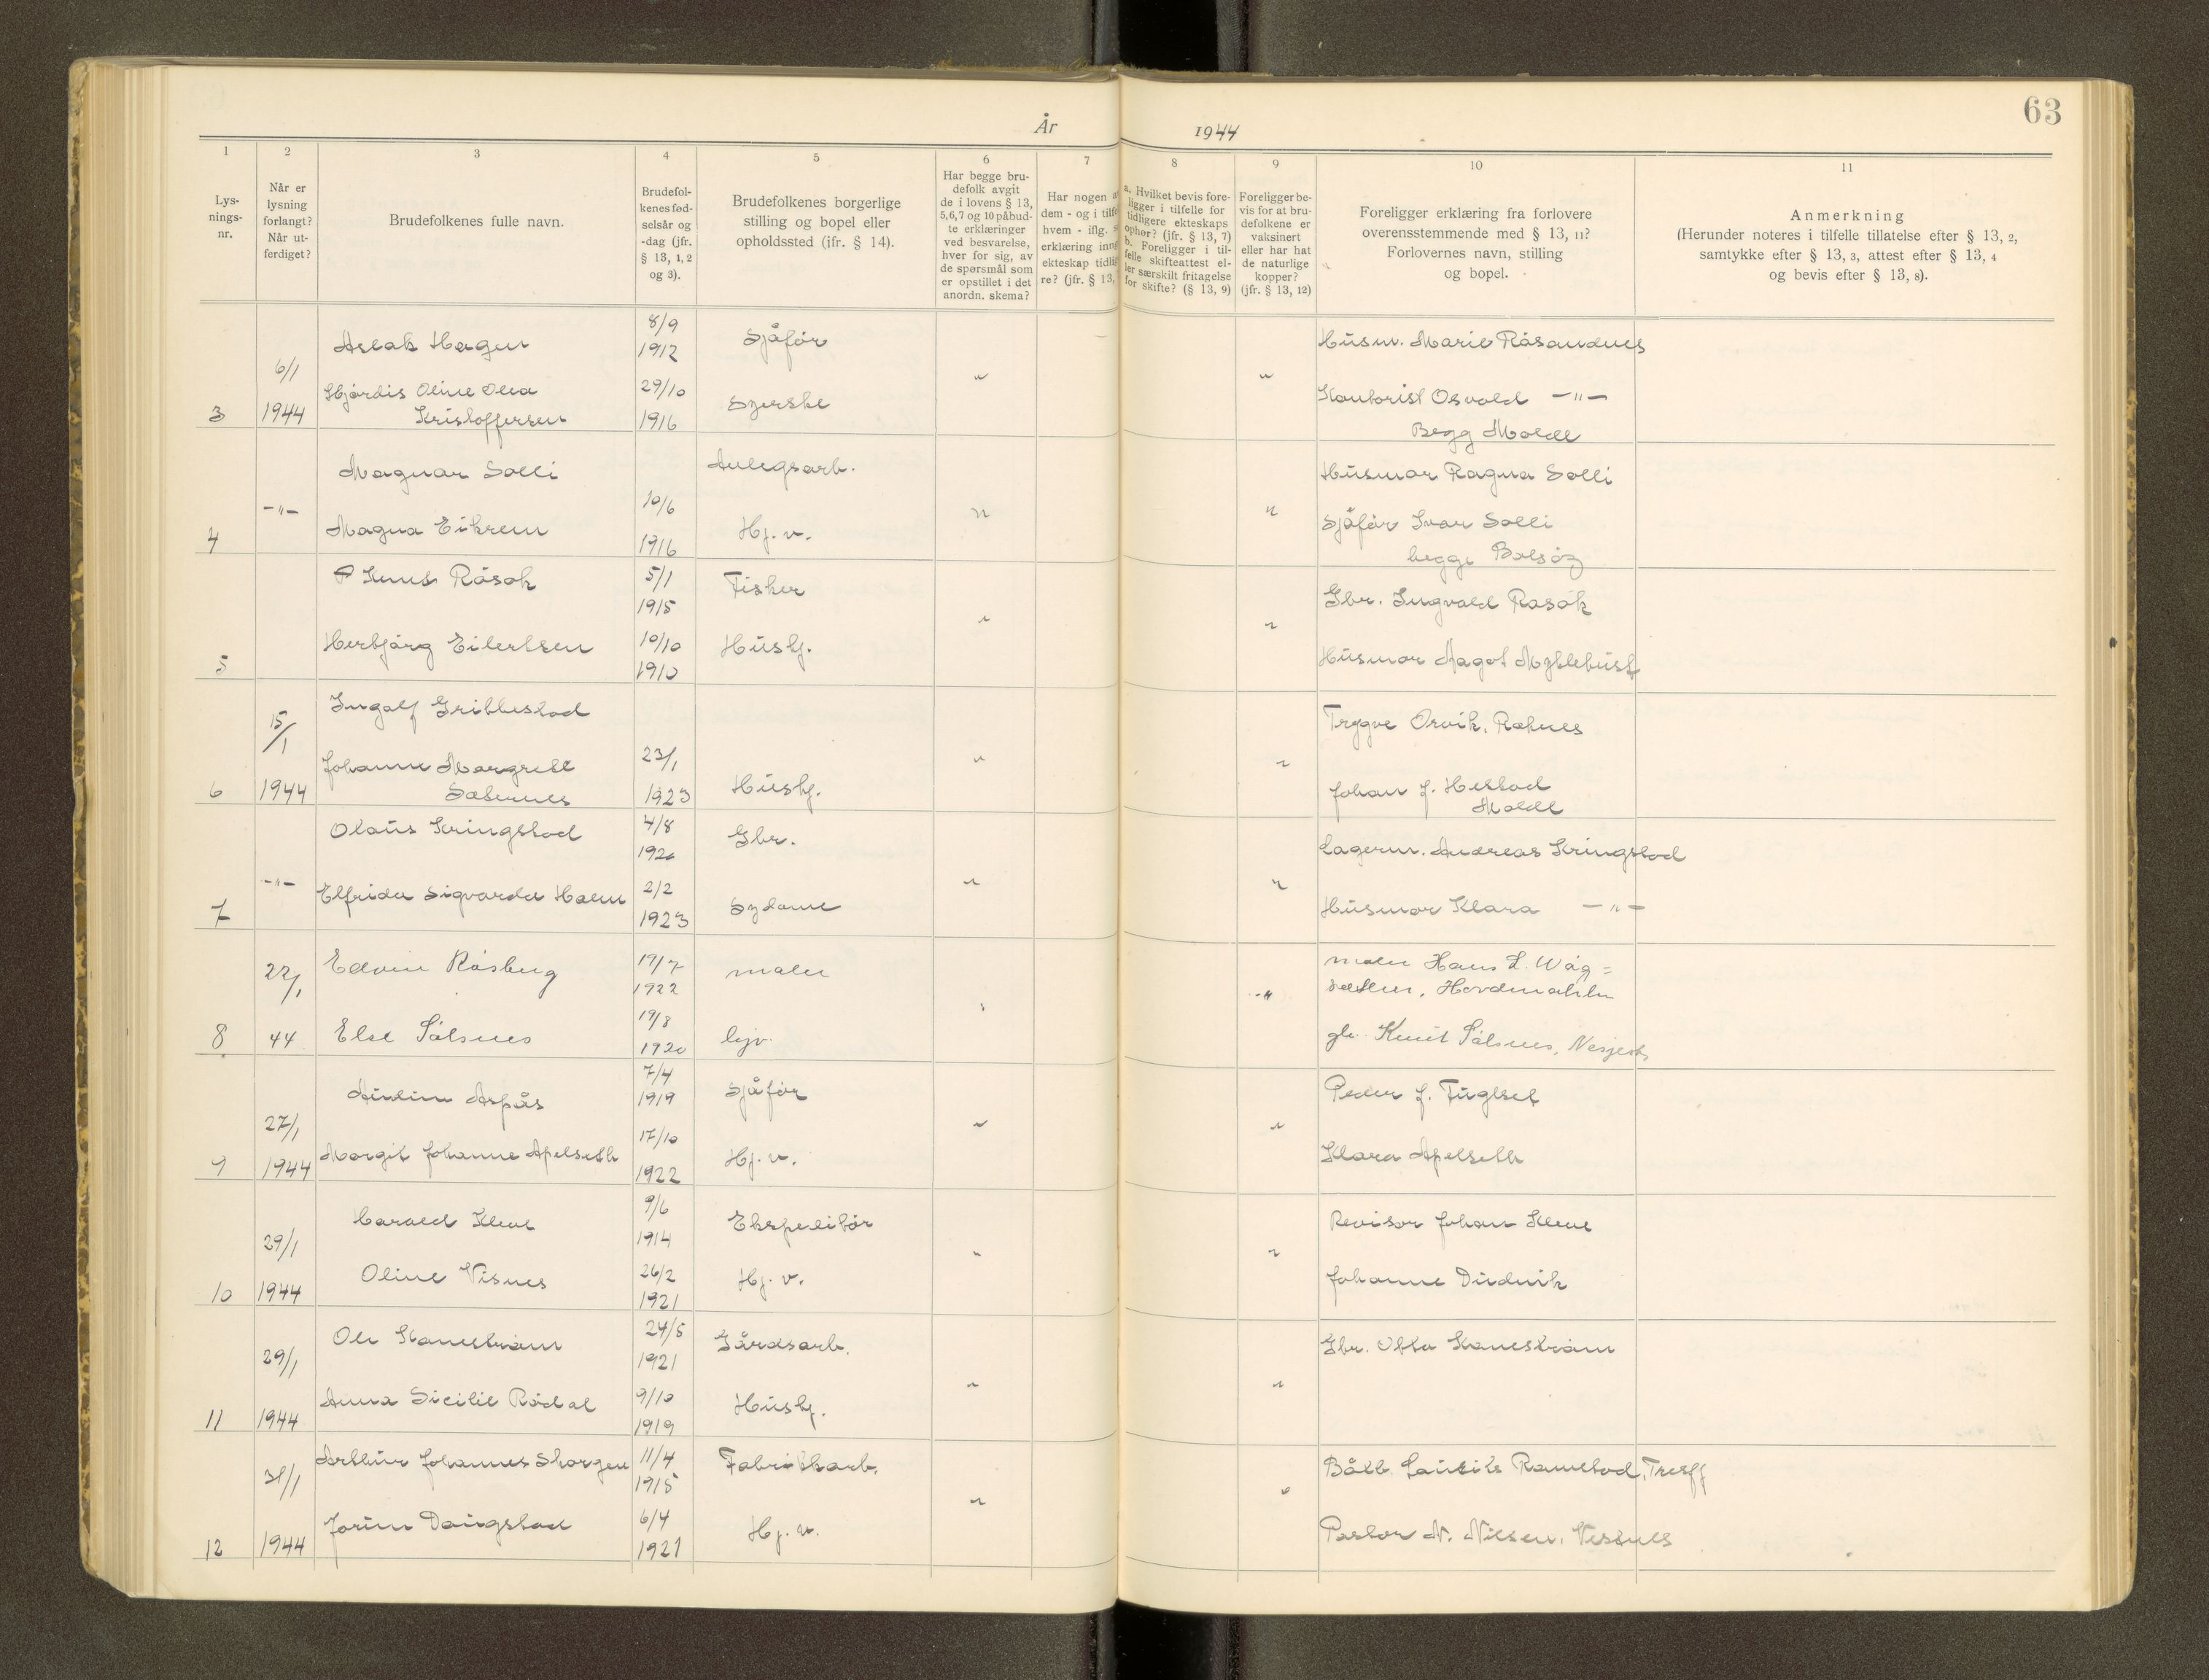 63
År 1944
1
2
3
4
5
6
7
8
9
10
11
Lys-
nings-
nr.
Når er
lysning
forlangt?
Når ut-
ferdiget?
Brudefolkenes fulle navn.
Brudefol-
kenes fød-
selsår og
-dag (jfr.
§ 13, 1, 2
og 3).
Brudefolkenes borgerlige
stilling og bopel eller
opholdssted (jfr. § 14).
Har begge bru-
defolk avgit
de i lovens § 13,
5,6,7 og 10 påbud-
te erklæringer
ved besvarelse,
hver for sig, av
de spørsmål som
er opstillet i det
anordn. skema?
Har nogen a
dem - og i tilf
hvem - iflg.
erklæring inng
ekteskap tidli
re? (jfr. § 13,
a. Hvilket bevis fore-
ligger i tilfelle for
tidligere ekteskaps
ophør? (jfr. § 13, 7)
b. Foreligger i til-
felle skifteattest el-
ler særskilt fritagelse
for skifte? (§ 13, 9)
Foreligger be-
vis for at bru-
defolkene er
vaksinert
eller har hat
de naturlige
kopper?
(jfr. § 13, 12)
Foreligger erklæring fra forlovere
overensstemmende med § 13, 11?
Forlovernes navn, stilling
og bopel.
Anmerkning
(Herunder noteres i tilfelle tillatelse efter § 13, 2,
samtykke efter § 13, 3, attest efter § 13, 4
og bevis efter § 13, 8).
3 6/1 1944
Aslak Hagen 8/9 1912 Sjåfør
Hjørdis Oline Olea
Kristoffersen 29/10 1916 Syerske
" "
Husm. Marie Røsandnes
Kontorist Osvald -"-
Begg Molde
4 -"-
Magnar Solli Anlegsarb.
Magna Eikrem 10/6 1916 Hj. v.
" "
Husmor Ragna Solli
Sjåfør Ivar Solli
begge Bolsøy
5
Knut Røsok 5/1 1915 Fisker
Herbjørg Eilertsen 10/10 1910 Hushj.
" "
Gbr. Ingvald Røsok
Husmor Aagot Myklebust
6 15/1 1944
Ingolf Gribbestad
Johanne Margrete
Salernes 23/1 1923 Hushj.
" "
Trygve Orvik, Røknes
Johan J. Hestad
Molde
7 -"-
Olaus Kringstad 4/8 1920 Gbr.
Elfrida Sigvarda Holm 2/2 1923 Sydame
" "
Lagerm. Andreas Kringstad
Husmor Klara -"-
8 22/1 44
Edvin Røsberg 19/7 1922 maler
Else Sølsnes 19/8 1920 hjv.
"
maler Hans L. Wåg=
sæther, Hovdenakken
gbr. Knut Sølsnes,
9 27/1 1944
Audun Aspås 7/4 1919 Sjåfør
Margit Johanne Apelseth 17/10 1922 Hj. v.
" "
Peder J. Fuglset
Klara Apelseth
10 29/1 1944
Harald Kleve 9/6 1914 Ekspeditør
Oline Visnes 26/2 1921 Hj. v.
" "
Revisor Johan Kleve
Johanne Dudvik
11 29/1 1944
Ole Kanestrøm 24/5 1921 Gårdsarb.
Anna Sicilie Rødal 9/10 1919 Hushj.
" "
Gbr. Otto Kanestrøm
12 31/1 1944
Arthur Johannes Skorgen 11/4 1915 Fabrikkarb.
Jorun Daugstad 6/4 1921 Hj. v.
" "
Båtb. Laurits Ramstad, Tresfj
Pastor N. Nilsen, Vestnes